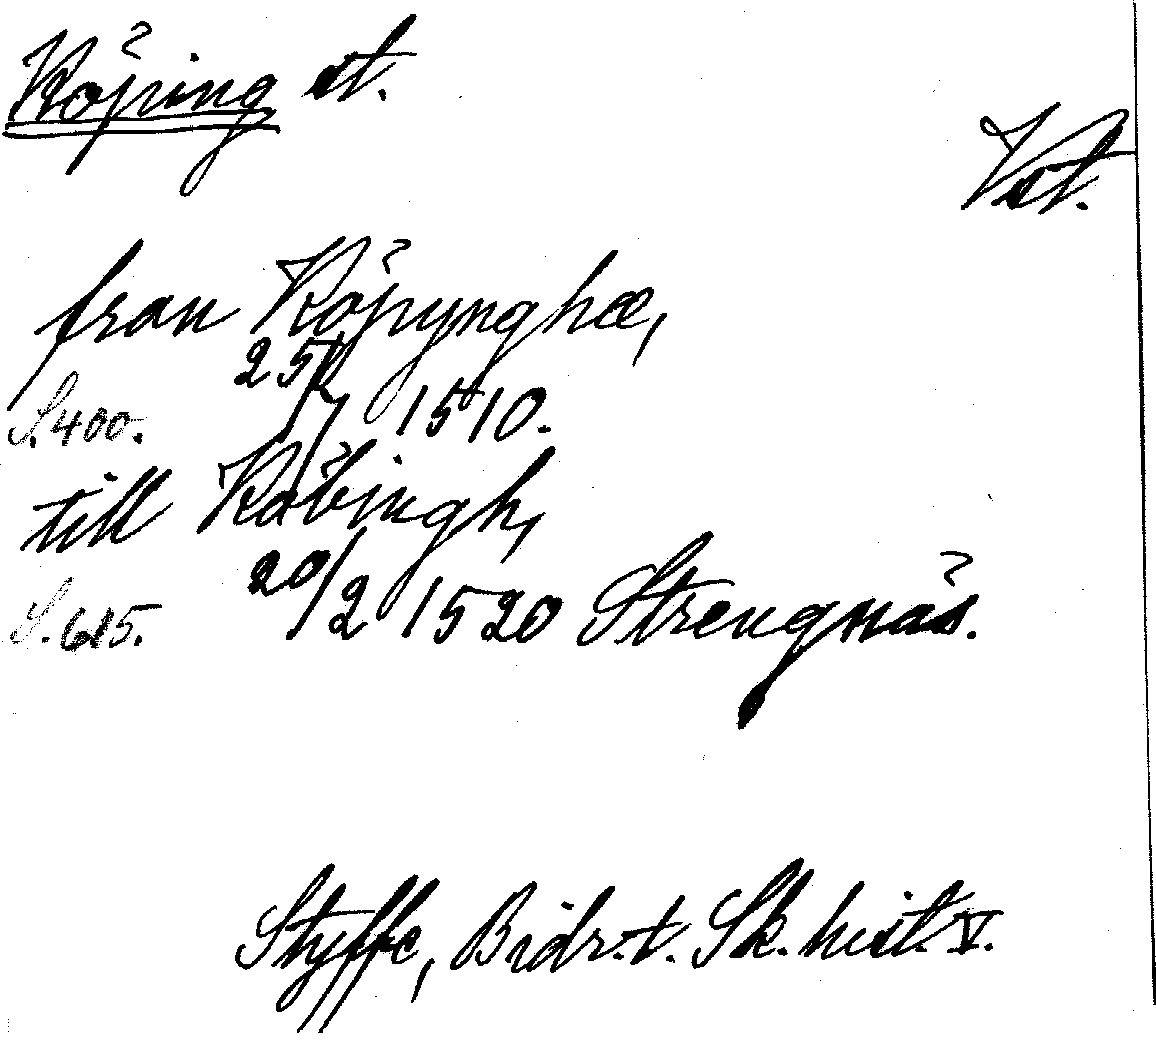 Köping st.
Vst.
fran Köpynghæ,
25/7 1510.
S. 400.
till Köbingh,
20/2 1520 Strengnäs.
S. 615.
Styffe, Bidr. t. Sk. hist. V.